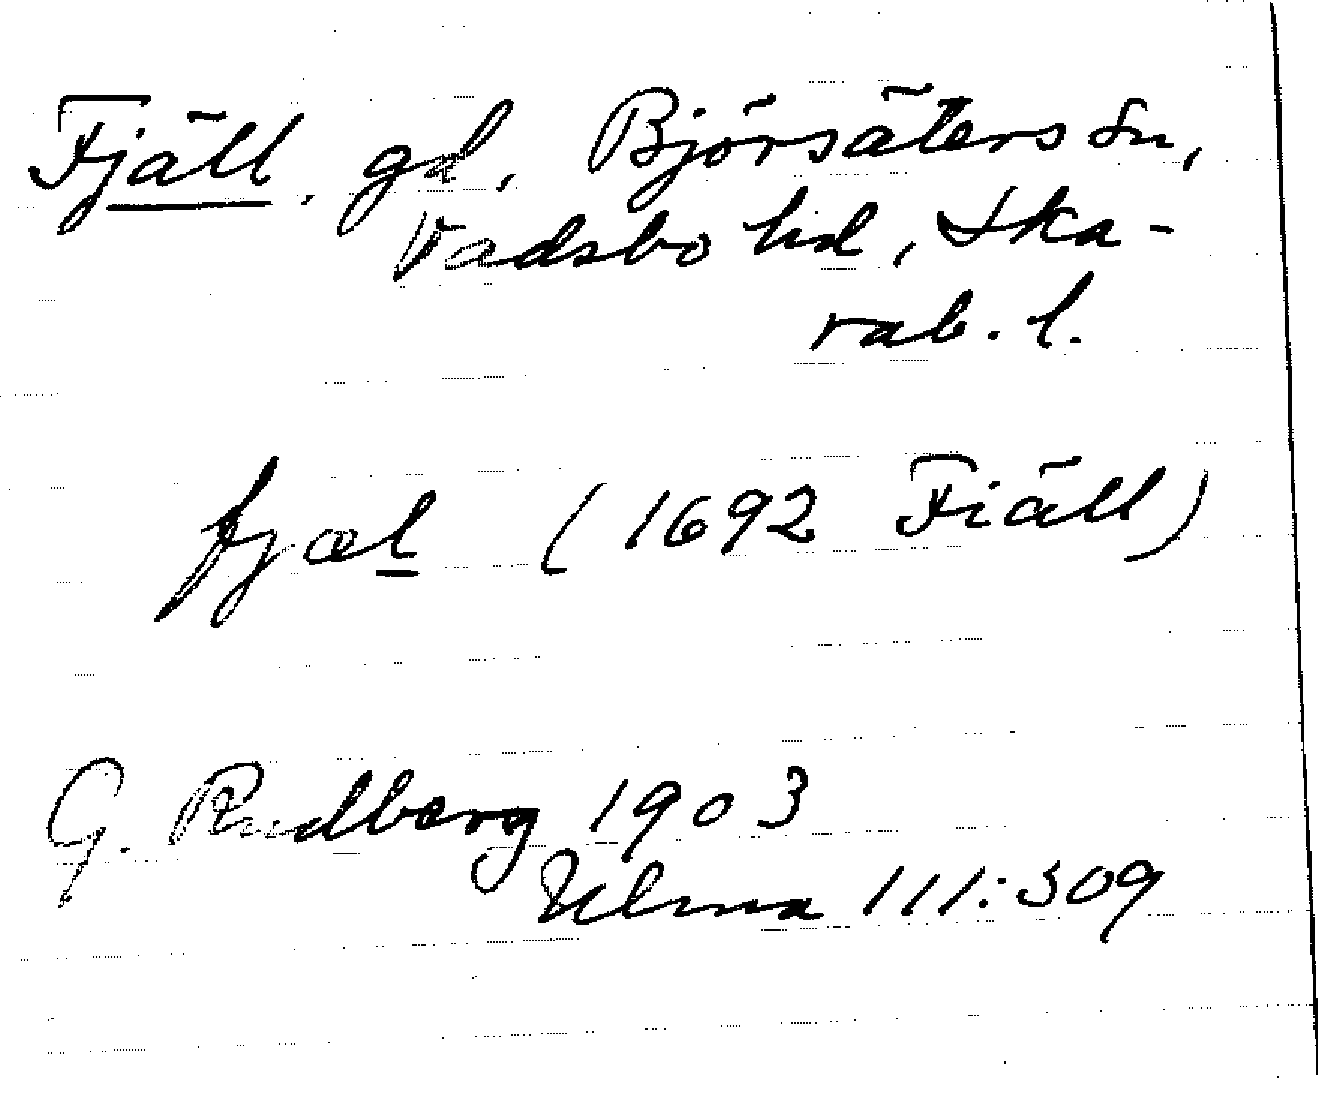 Fjäll, gd, Björsäters sn,
Vadsbo hd, Ska-
rab. l.
fjæl (1692 Fiäll)
G. Rudberg 1903
Ulma 111:309